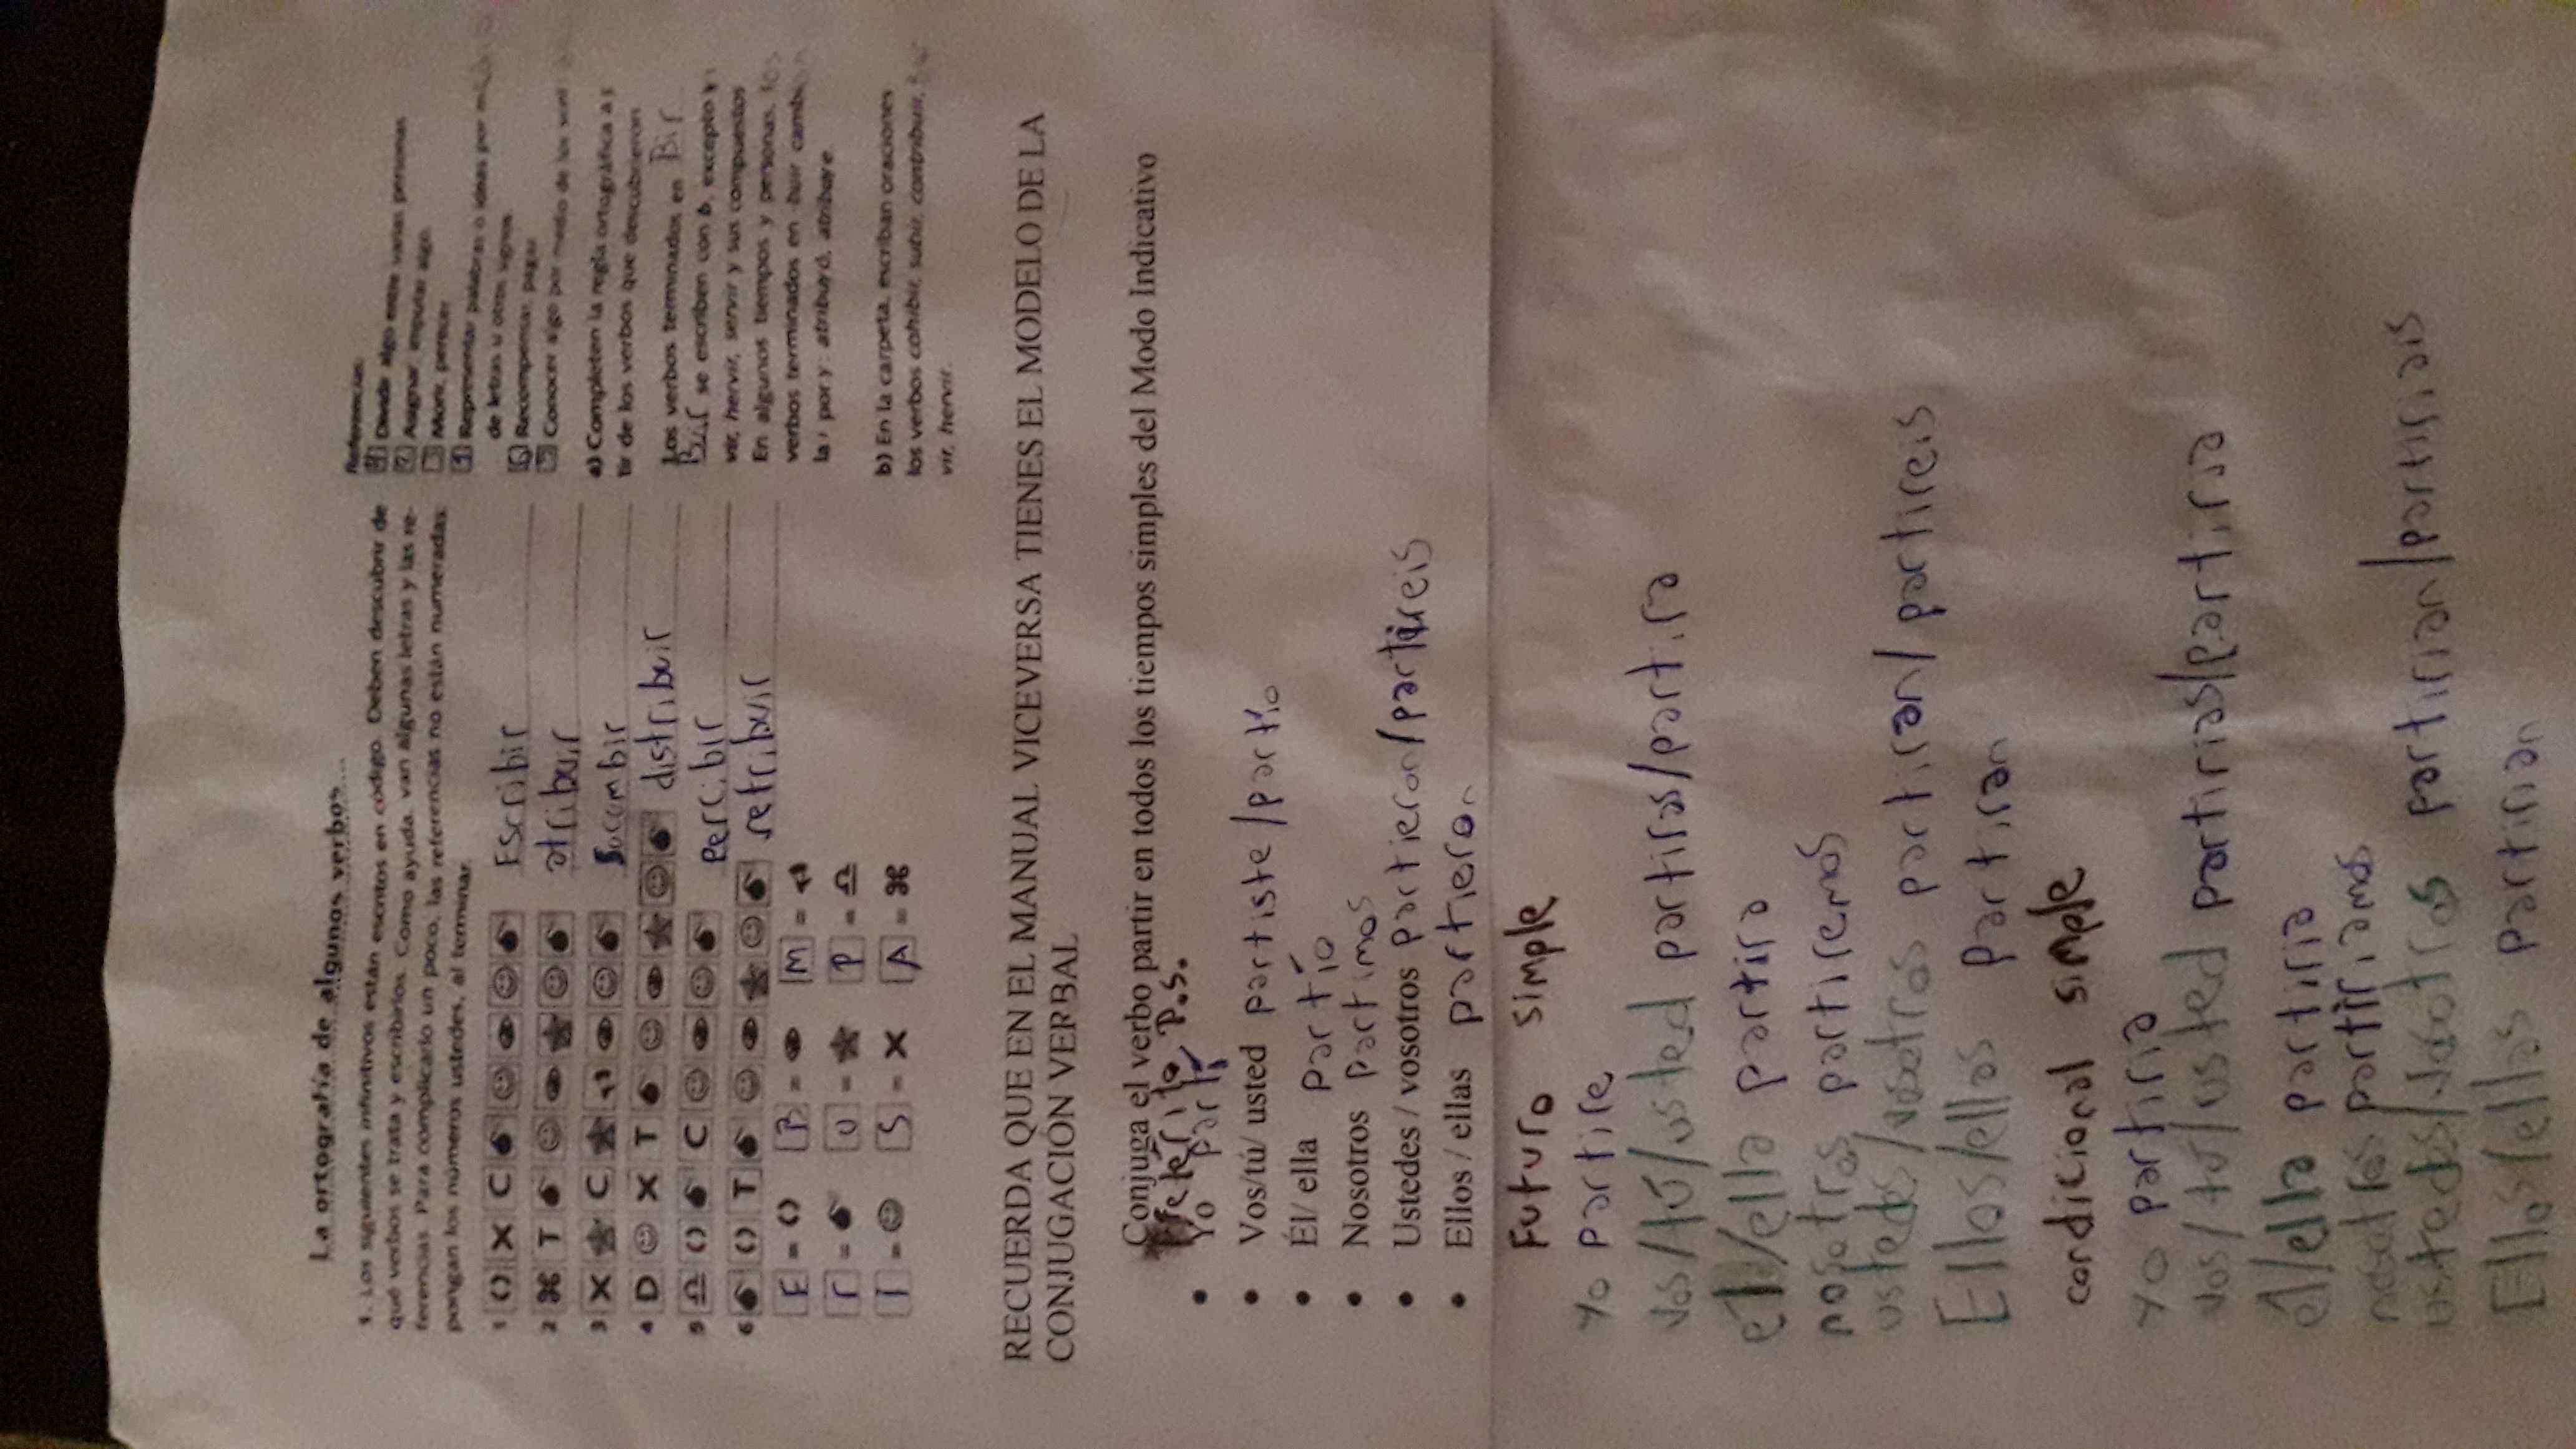 La ortografía de algunos verbos...
1. Los siguientes infinitivos están escritos en código. Deben descubrir de
qué verbos se trata y escribirlos. Como ayuda, van algunas letras y las re-
ferencias. Para complicarlo un poco, las referencias no están numeradas:
pongan los números ustedes, al terminar.
1 X C Escribir
2 T atribuir
3 X C Sucumbir
4 D X T distribuir
5 C percibir
6 T retribuir
E = B = M =
r = U = P =
I = S = X A =
Referencias:
4 Dividir algo entre varias personas.
2 Asignar, imputar algo.
Morir, perecer.
1 Representar palabras o ideas por
de letras u otros signos.
6 Recompensar, pagar.
5 Conocer algo por medio de los
a) Completen la regla ortográfica a
tir de los verbos que descubrieron
Los verbos terminados en Bir
Buir se escriben con b, excepto
vir, hervir, servir y sus compuestos
En algunos tiempos y personas, los
verbos terminados en buir
la i por y: atribuyó, atribuye.
b) En la carpeta, escriban oraciones
los verbos cohibir, subir, contribuir,
vir, hervir.
RECUERDA QUE EN EL MANUAL VICEVERSA TIENES EL MODELO DE LA
CONJUGACIÓN VERBAL
Conjuga el verbo partir en todos los tiempos simples del Modo Indicativo
P.S.
• Yo partí
• Vos/tú/ usted partiste/partío
• Él/ ella partío
• Nosotros partimos
• Ustedes / vosotros partieron/partireis
• Ellos / ellas partieron
Futuro simple
yo partire
vos/tú/usted partiras/partira
él/ella partira
nosotros partiremos
ustedes/vosotros partiran/partireis
Ellos/ellas partiran
condicional simple
yo partiria
vos/tú/usted partirias/partiria
él/ella partiria
nosotros partiriamos
ustedes/vosotros partirian/partiriais
Ellos/ellas partirian